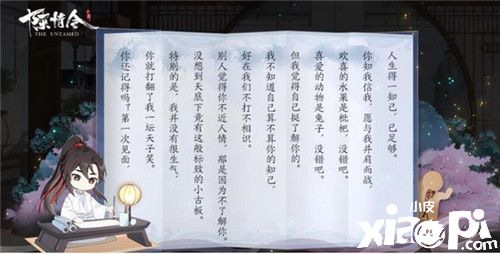 陈情令
THE UNTAMED
你还记得吗？第一次见面，
你就打翻了我一坛天子笑。
特别的是，我并没有很生气，
没想到天底下竟有这般标致的小古板。
别人觉得你不近人情，那是因为不了解你。
好在我们不打不相识。
我不知道自己算不算你的知己，
但我觉得自己挺了解你的。
喜爱的动物是兔子，没错吧。
欢喜的水果是枇杷，没错吧。
你知我信我，愿与我并肩而战。
人生得一知己，已足够。
小皮
xiaopi
.com